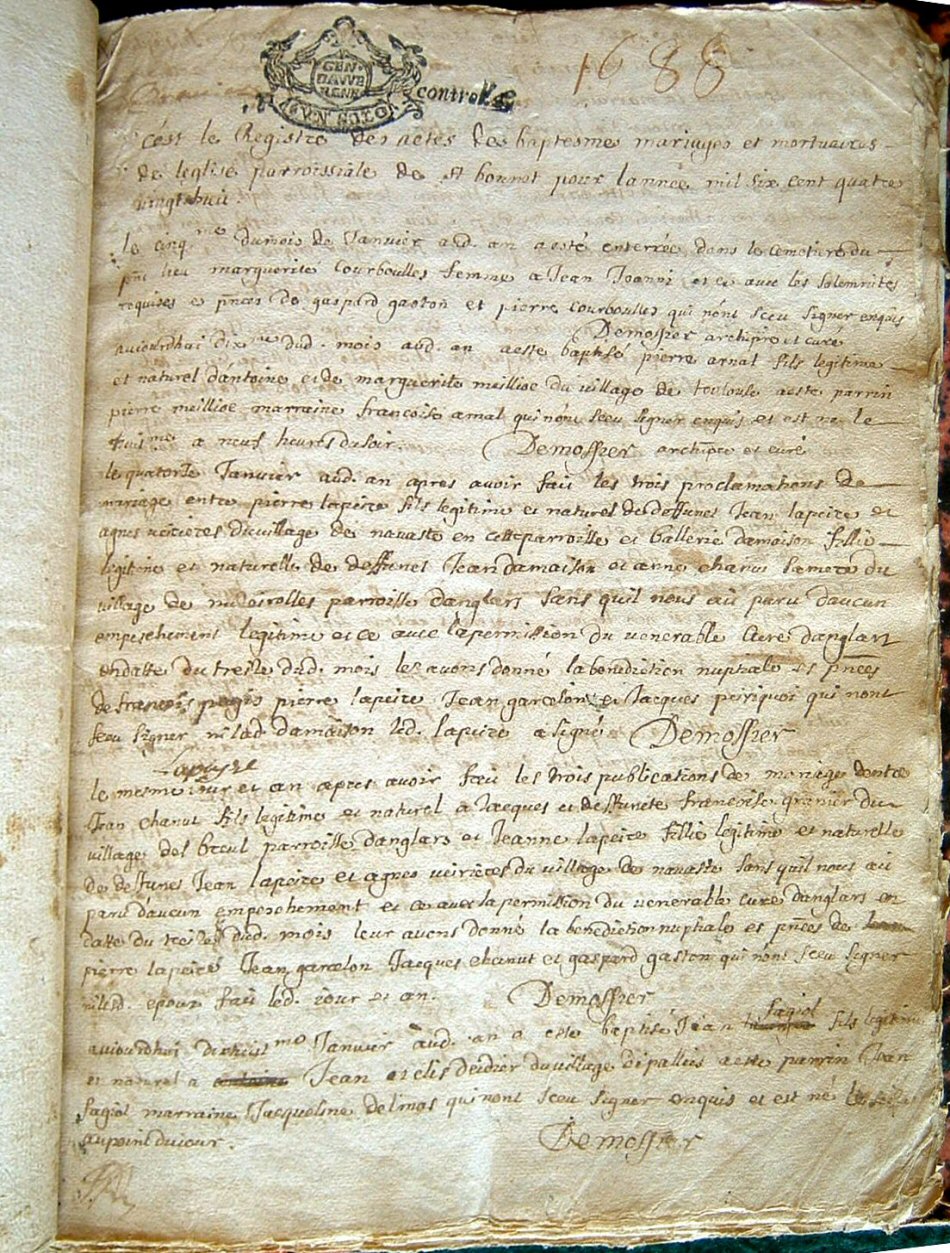 1688
GEN DAUVE RGNE
UN SOL
controlle
c'est le Registre des actes des baptesmes mariages et mortuaires
de leglise parroissiale de st bonnet pour lannee mil six cent quatre
vingt huit
le cinq.me dumois de Janvier aud. an a esté enterrée dans le cemetiere du
pnt lieu marguerite Courboulles femme a Jean Joanni et ce avec les solemnités
requises e pnces de gaspard gaston et pierre Courboulles qui n'ont sceu signer enquis
Demossier archipre et curé
aujourdhui dix.me dud. mois aud. an a este baptisé pierre arnal fils legitime
et naturel d'antoine et de marguerite meillioe du village de touloule a este parrin
pierre meillioe marraine francoise arnal qui n'ont sceu signer enquis et est ne le
huit.me a neuf heures du soir. Demossier archipre et curé
le quatorze Janvier aud. an apres avoir fait les trois proclamations de
mariage entre pierre lapeire fils legitime et naturel de deffunct Jean lapeire et
agnes veirieres du village de navaste en cette parroisse et ballerie damaison fillie
legitime et naturelle de deffunct Jean damaison et anne chanut sa mere du
village de parroisse danglars sans quil nous ait paru d'aucun
empeschement legitime et ce avec la permission du venerable Curé danglars
en datte du treise dud. mois les avons donné la benediction nuptiale es pnces
de francois pagis pierre lapeire Jean garcelon et Jacques qui nont
sceu signer ni lad. damaison led. lapeire a signé Demossier
Lapeyre
le mesme jour et an apres avoir fait les trois publications de mariage dentre
Jean chanut fils legitime et naturel a Jacques et deffuncte francoise granier du
village del breul parroisse danglars et Jeanne lapeire fillie legitime et naturelle
de deffunct Jean lapeire et agnes veirieres du village de navaste sans quil nous ait
paru d'aucun empeschement et ce avec la permission du venerable curé danglars en
datte du treise dud. mois leur avons donné la benediction nuptiale es pnces de
pierre lapeire Jean garcelon Jacques chanut et gaspard gaston qui n'ont sceu signer
ni led. epoux fait led. jour et an. Demossier
fagiol
aujourdhui dixhuit.me Janvier aud. an a este baptisé Jean fils legitime
et naturel a Jean et elis deidier du village a este parrin Jean
fagiol marraine Jacqueline delmas qui nont sceu signer enquis et est né
au point du jour. Demossier